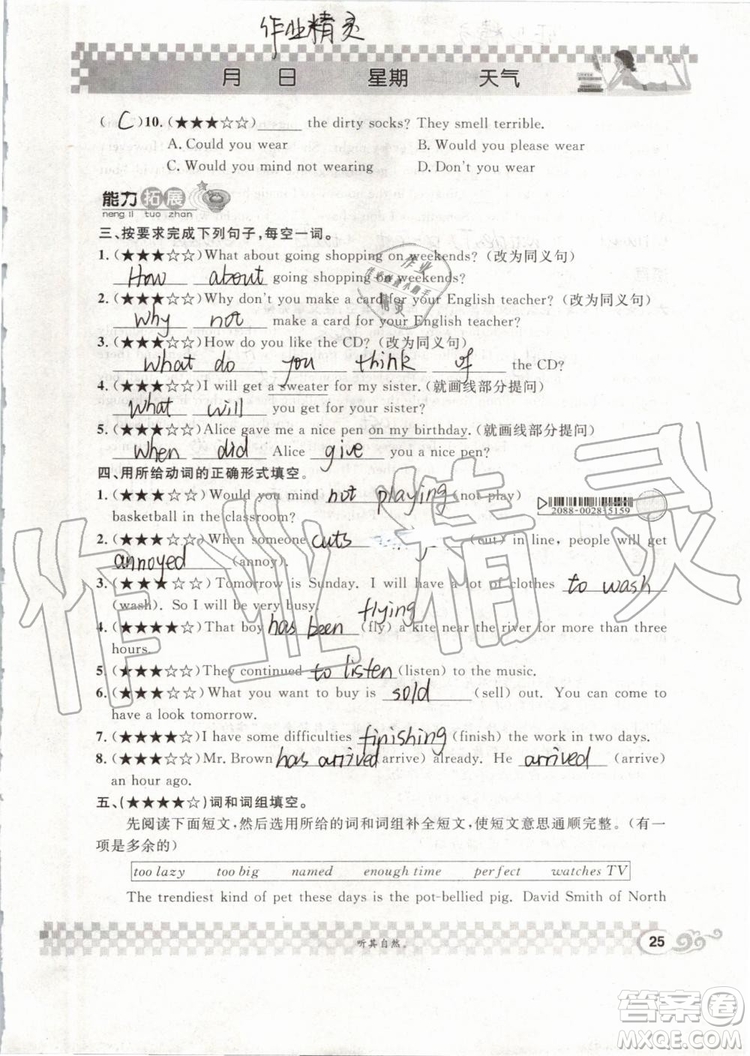 作业精灵
月 日 星期 天气
( C )10. (★★★☆☆)______ the dirty socks? They smell terrible.
A. Could you wear B. Would you please wear
C. Would you mind not wearing D. Don't you wear
能力拓展
neng li tuo zhan
三、按要求完成下列句子,每空一词。
1. (★★★☆☆)What about going shopping on weekends? (改为同义句)
How about going shopping on weekends?
2. (★★★☆☆)Why don't you make a card for your English teacher? (改为同义句)
Why not make a card for your English teacher?
3. (★★★☆☆)How do you like the CD? (改为同义句)
What do you think of the CD?
4. (★★★☆☆)I will get a sweater for my sister. (就画线部分提问)
What will you get for your sister?
5. (★★★☆☆)Alice gave me a nice pen on my birthday. (就画线部分提问)
When did Alice give you a nice pen?
四、用所给动词的正确形式填空。
1. (★★★☆☆)Would you mind not playing (not play)
basketball in the classroom?
2088-0028-5159
2. (★★★☆☆)When someone cuts (cut) in line, people will get
annoyed (annoy).
3. (★★★★☆)Tomorrow is Sunday. I will have a lot of clothes to wash
(wash). So I will be very busy.
4. (★★★★☆)That boy has been flying (fly) a kite near the river for more than three
hours.
5. (★★★☆☆)They continued to listen (listen) to the music.
6. (★★★☆☆)What you want to buy is sold (sell) out. You can come to
have a look tomorrow.
7. (★★★★☆)I have some difficulties finishing (finish) the work in two days.
8. (★★★☆☆)Mr. Brown has arrived (arrive) already. He arrived (arrive)
an hour ago.
五、(★★★★☆)词和词组填空。
先阅读下面短文,然后选用所给的词和词组补全短文,使短文意思通顺完整。(有一
项是多余的)
too lazy too big named enough time perfect watches TV
The trendiest kind of pet these days is the pot-bellied pig. David Smith of North
听其自然。
25
作业精灵
答案圈
MXQE.COM